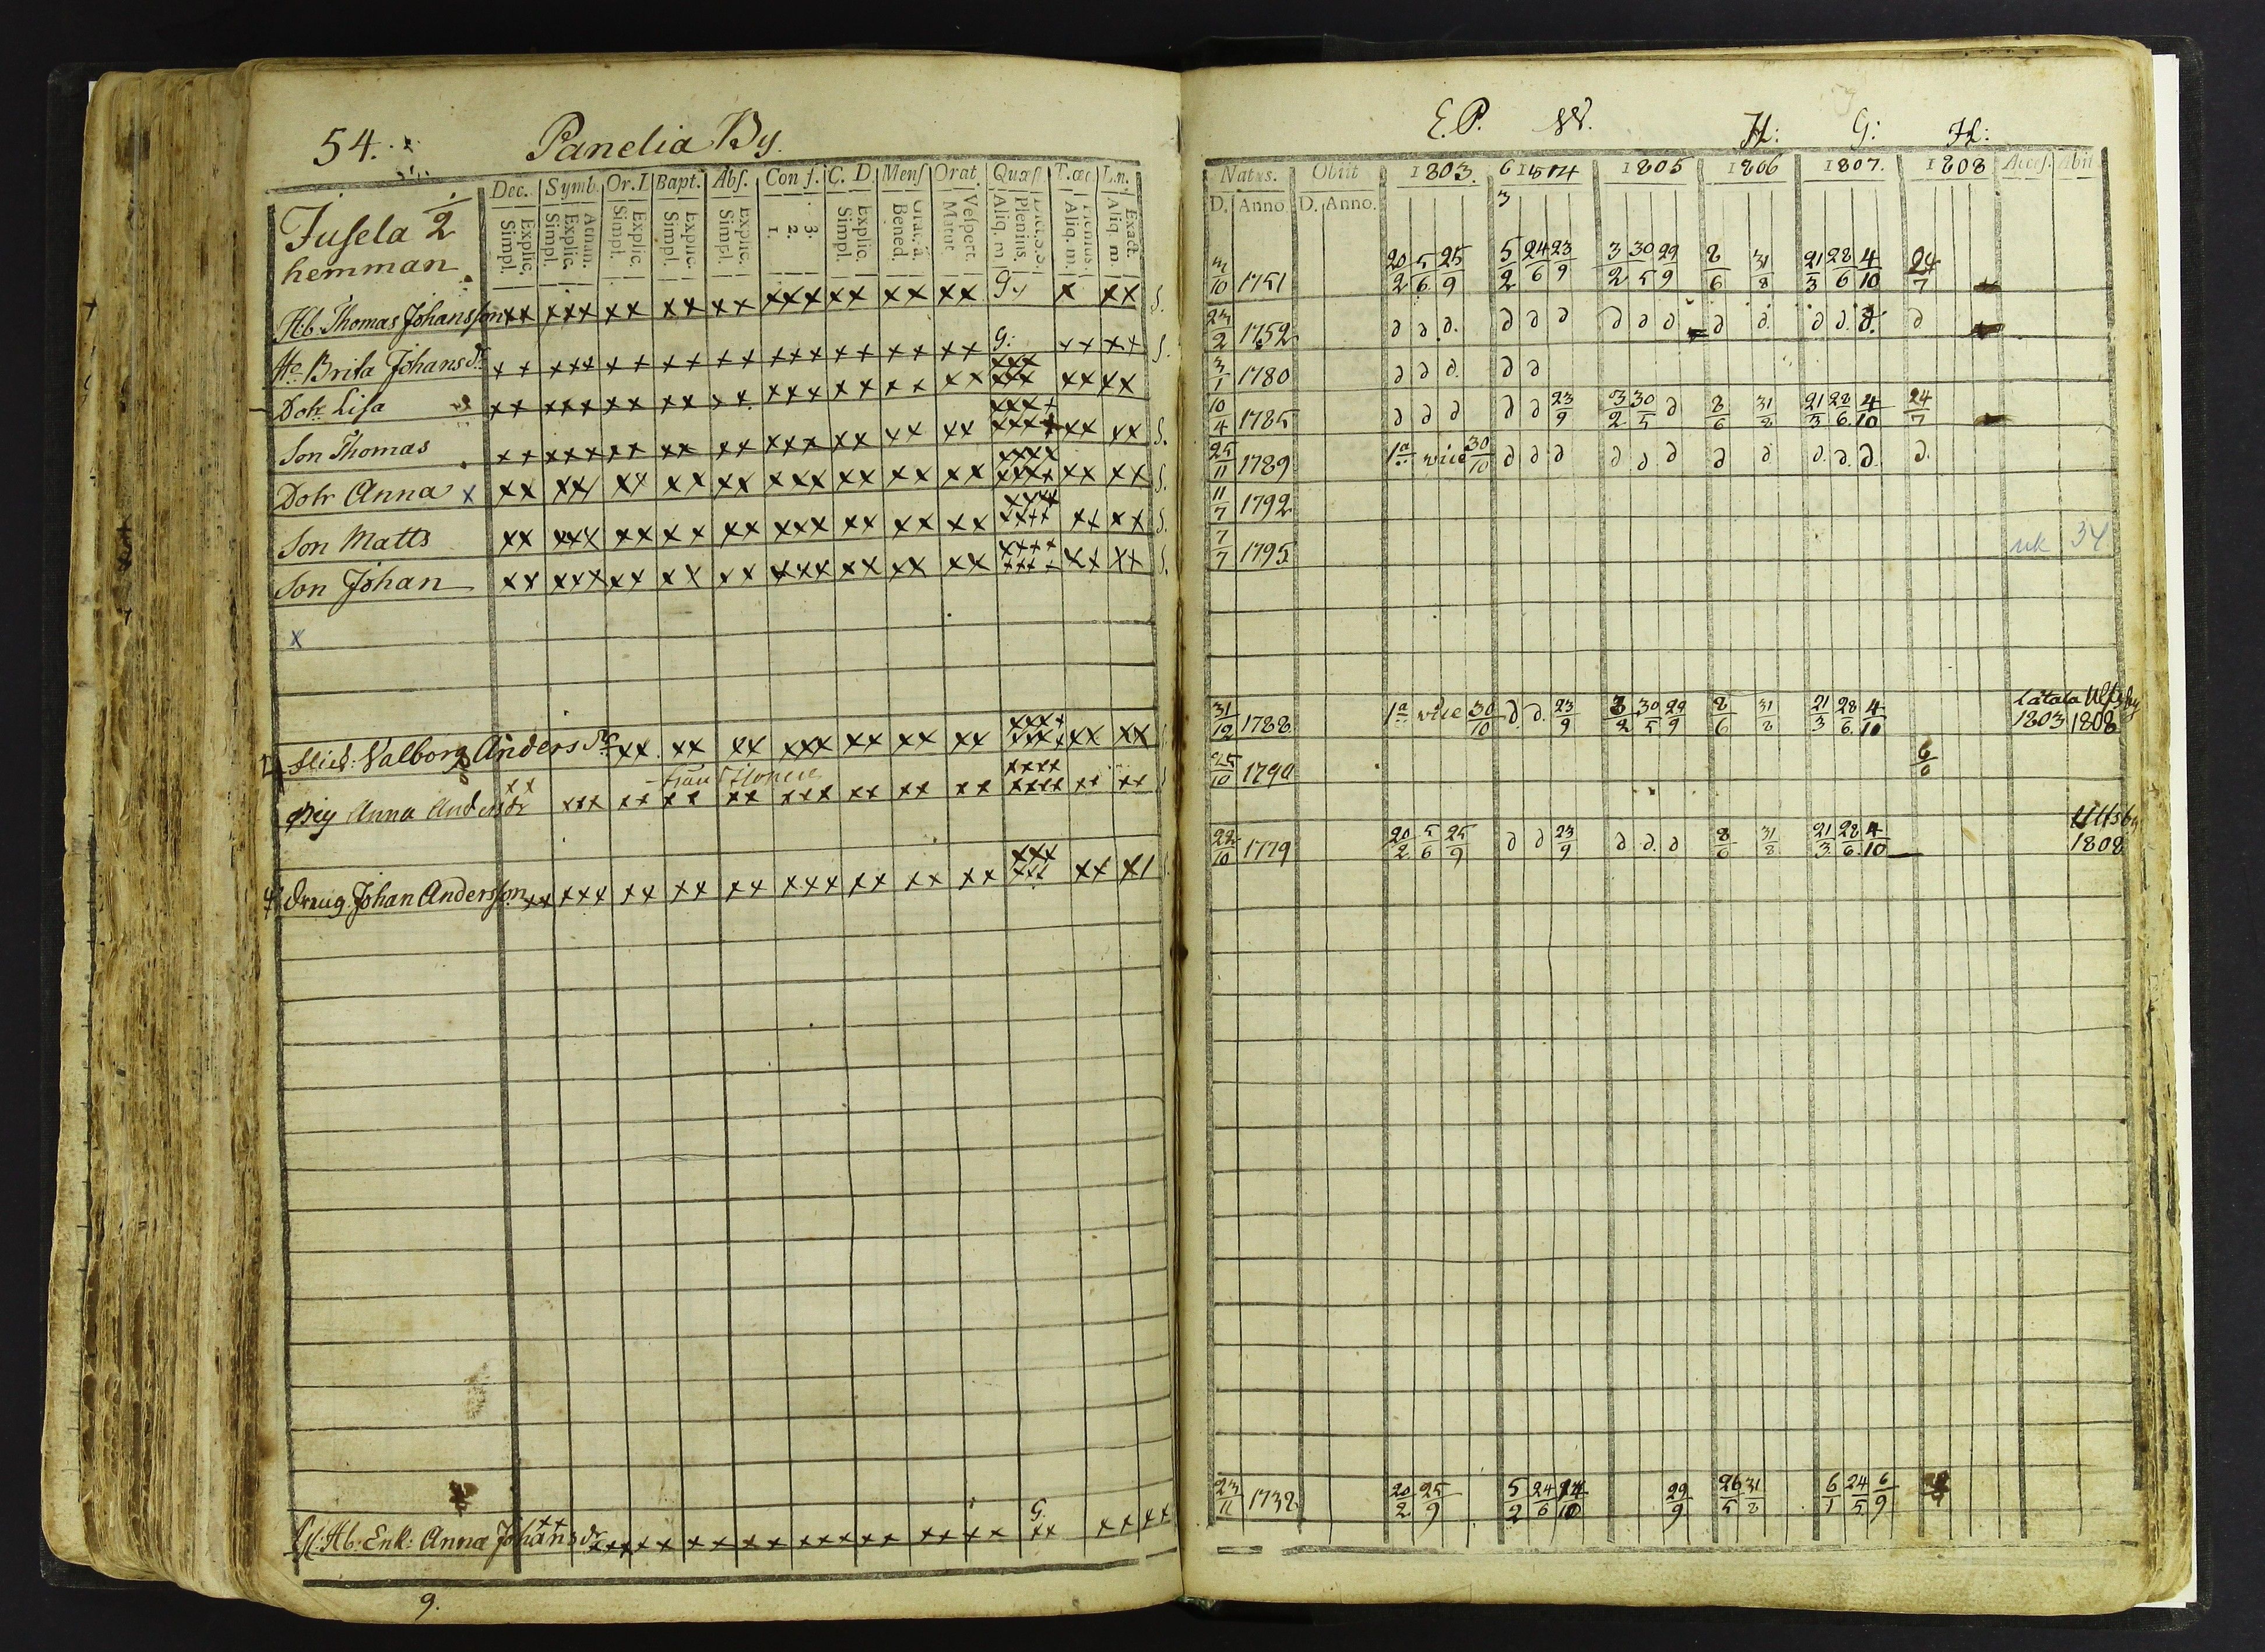 54.
Panelia By.
Jusela 1/2
hemman
Dec. Symb. Or.D Bapt. Abs. Conf. C. D. Mens Orat. Quæst T.æc L.n.
Explic. Simpl.
Athan. Explic. Simpl.
Explic. Simpl.
Explic. Simpl.
Explic. Simpl.
3. 2. 1.
Explic. Simpl.
Bened.
Vespert. Matut.
Plenius. Aliq. m.
Aliq. m.
Exact. Aliq. m.
Hb. Thomas Johansson xx xxx xx xx xx xxx xx xx xx G. x xx S.
Ho Brita Johansdr xx xxx xx xx xx xxx xx xx xx G: xx xx S.
Dotr Lisa xx xxx xx xx xx xxx xx xx xx xxx xxx xx xx
Son Thomas xx xxx xx xx xx xxx xx xx xx xxxx xxxx xx xx S.
Dotr Anna x xx xxx xx xx xx xxx xx xx xx xxxx xxxx xx xx S.
Son Matts xx xxx xx xx xx xxx xx xx xx xxxx xxxx xx xx S.
Son Johan xx xxx xx xx xx xxx xx xx xx xxxx xxxx xx xx S.
x
Valborg Andersdr xx xx xx xxx xx xx xx xxxx xxxx xx xx
Pig Anna Andersdr xx xxx xx xx xx xxx xx xx xx xxxx xxxx xx xx
dreng Johan Andersson xx xxx xx xx xx xxx xx xx xx xxx xxx xx xx
Hb. Enk: Anna Johansdr xx xxx xx xx xx xxx xx xx xx G. xx xx xx
9.
E.P. W. H: G: H:
Natus. Obiit 1803. 1804 1805 1806 1807. 1808 Acces. Abiit
D. Anno. D. Anno.
10 1751 20/2 5/6 25/9 5/2 24/6 23/9 3/2 30/5 29/9 8/6 31/8 21/3 28/6 4/10 24/7
23/2 1752 ∂ ∂ ∂. ∂ ∂ ∂ ∂ ∂ ∂ ∂ ∂. ∂. ∂. ∂. ∂
3/1 1780 ∂ ∂ ∂. ∂ ∂
10/4 1785 ∂ ∂ ∂ ∂ ∂ 23/9 3/2 30/5 ∂ 8/6 31/8 21/3 28/6 4/10 24/7
25/11 1789 1a vice 30/10 ∂ ∂ ∂ ∂ ∂ ∂ ∂ ∂ ∂. ∂. ∂. ∂.
11/7 1792
7/7 1795 uk 34
31/12 1788 1a vice 30/10 ∂ ∂. 23/9 3/2 30/5 29/9 8/6 31/8 21/3 28/6 4/10 Låtala 1803 Ulfsby 1808
25/10 1790
22/10 1779 20/2 5/6 25/9 ∂ ∂ 23/9 ∂ ∂. ∂ 8/6 31/8 21/3 28/6 4/10 Ulfsby 1808
23/11 1732 20/2 25/9 5/2 24/6 14/10 29/9 26/5 31/8 6/1 24/5 6/9